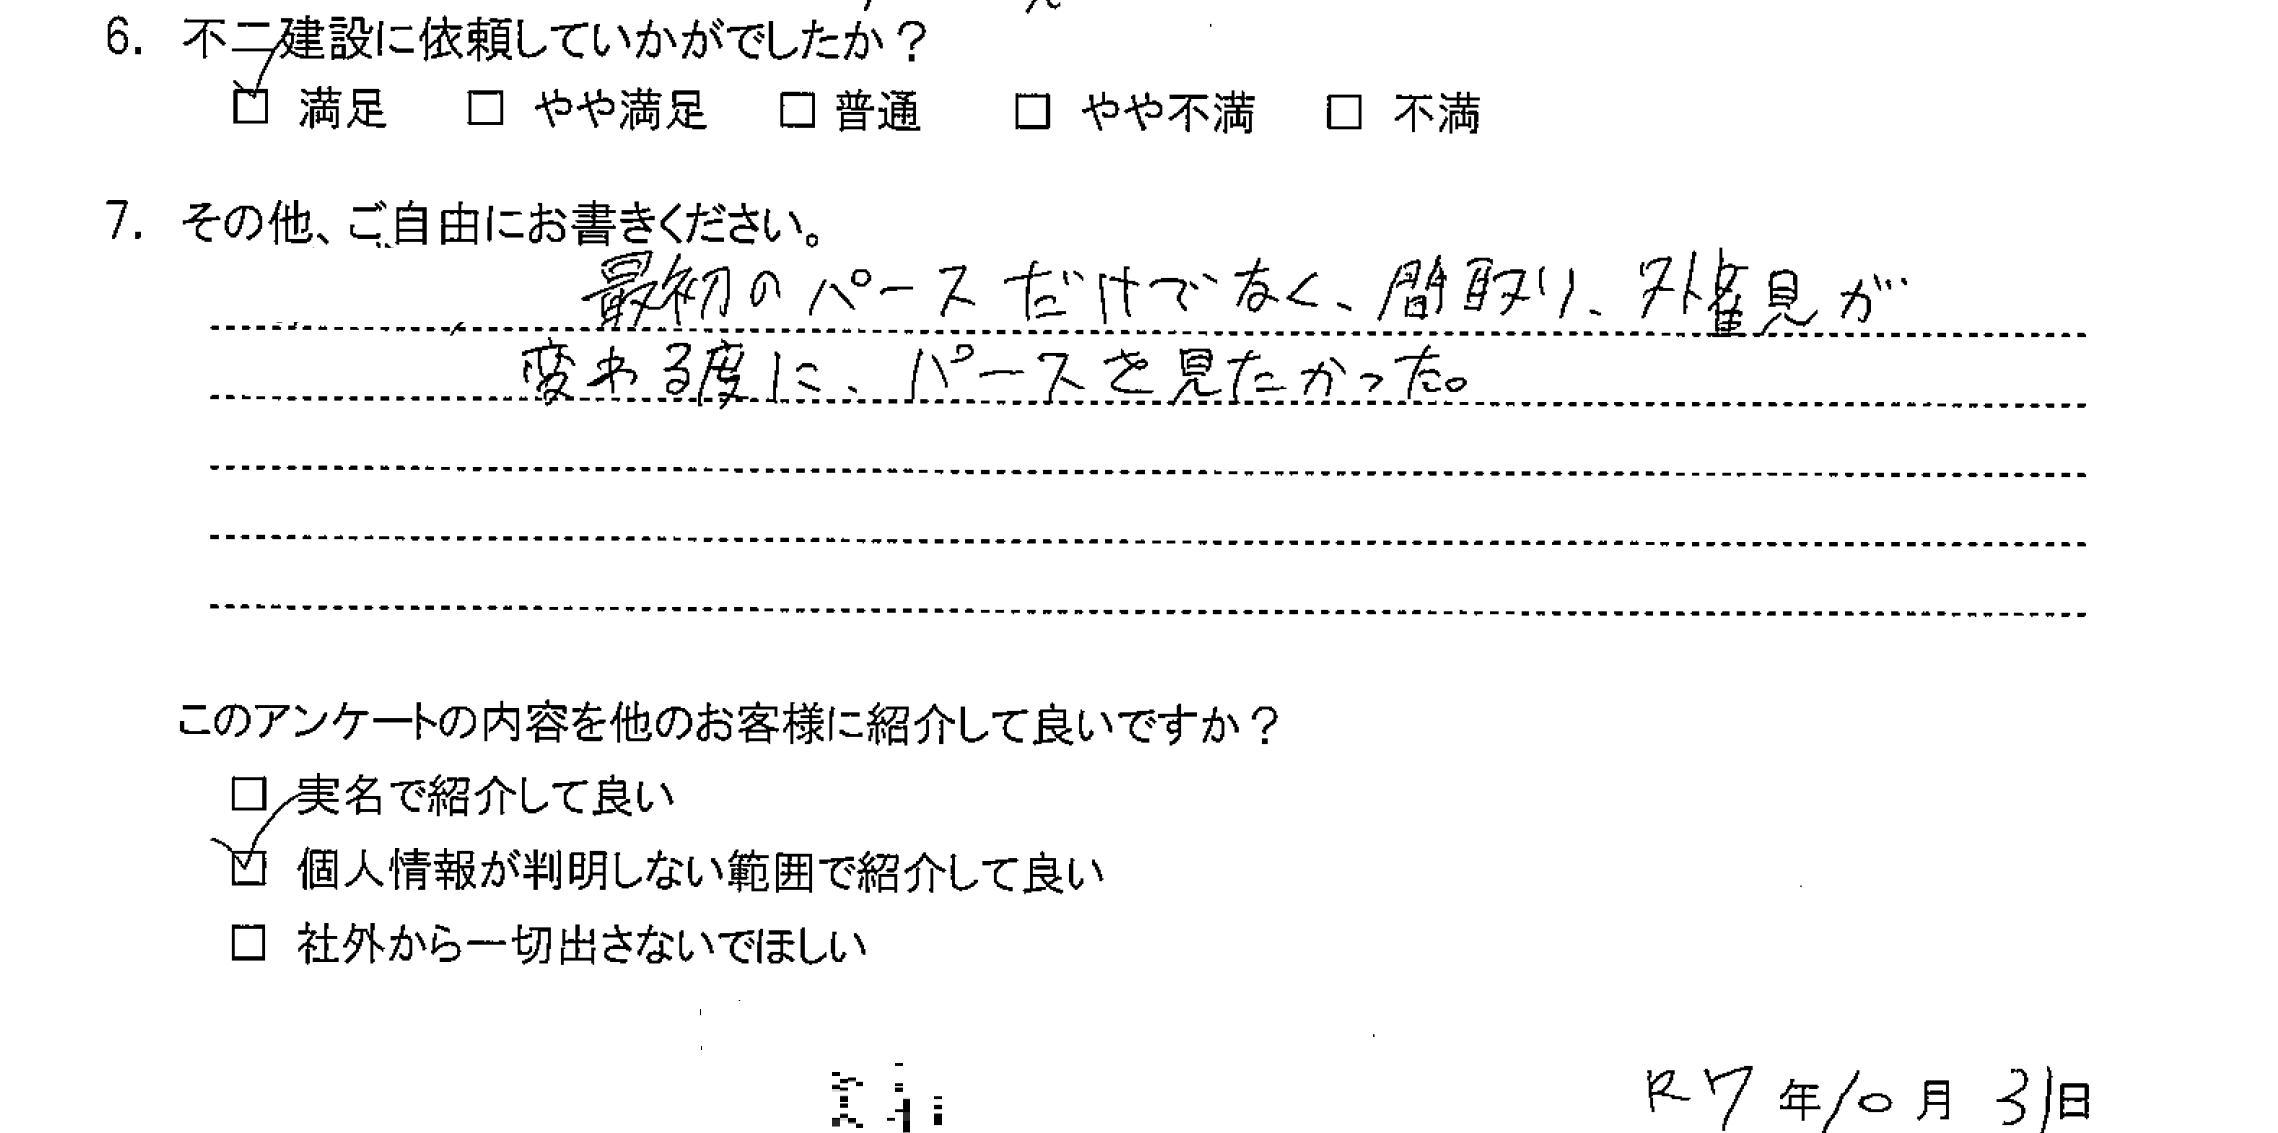 6. 不二建設に依頼していかがでしたか？
☑ 満足 □ やや満足 □ 普通 □ やや不満 □ 不満
7. その他、ご自由にお書きください。
最初のパースだけでなく、間取り、外観が
変わる度に、パースを見たかった。
このアンケートの内容を他のお客様に紹介して良いですか？
□ 実名で紹介して良い
☑ 個人情報が判明しない範囲で紹介して良い
□ 社外から一切出さないでほしい
R7年10月31日